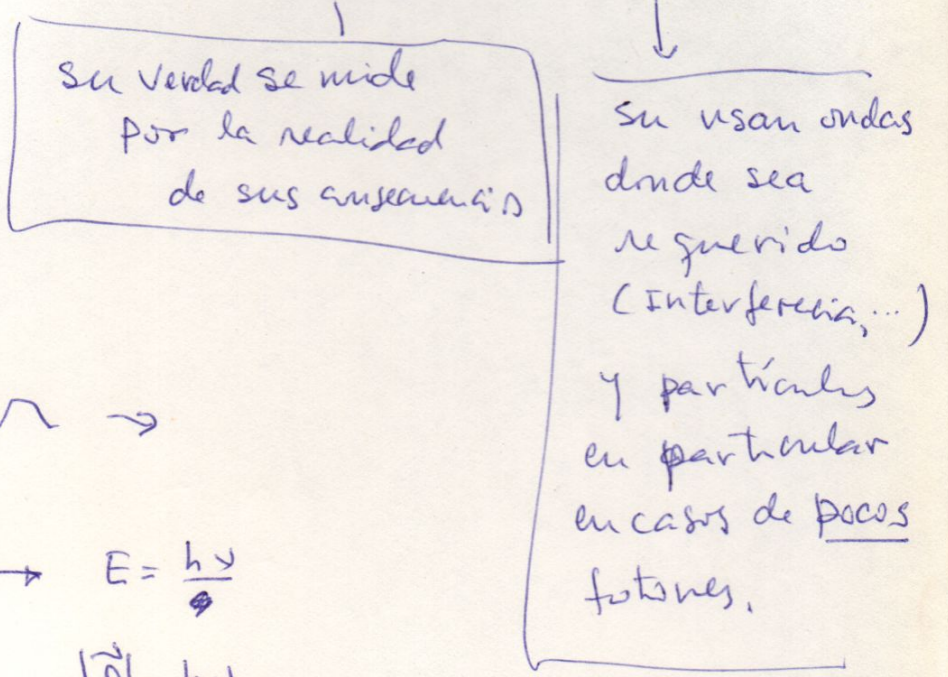 su verdad se mide
por la realidad
de sus consecuencias
su usan ondas
donde sea
requerido
(Interferecia,...)
y partículas
en particular
en casos de pocos
fotones.
E = hν